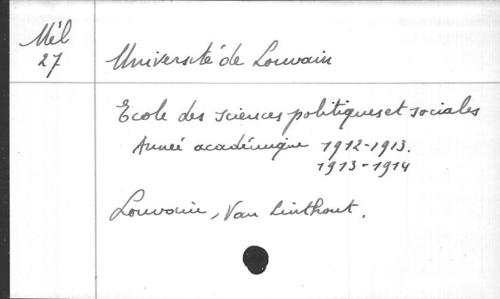 Mél
27
Université de Louvain
Ecole des sciences politiques et sociales
Année académique 1912-1913.
1913-1914
Louvain, Van Linthout.